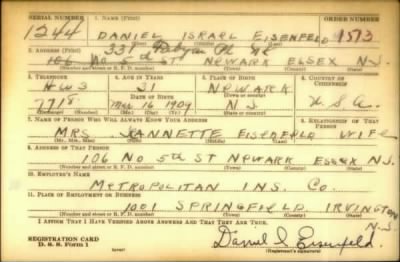 SERIAL NUMBER 1. NAME (Print) ORDER NUMBER
1244 DANIEL ISRAEL EISENFELD 1573
(First) (Middle) (Last)
2. ADDRESS (Print) 331
106 No 5th ST NEWARK ESSEX N.J.
(Number and street or R. F. D. number) (Town) (County) (State)
3. TELEPHONE 4. AGE IN YEARS 5. PLACE OF BIRTH 6. COUNTRY OF CITIZENSHIP
HU 3 31 NEWARK
7718 Mar 16 1909 N.J. U.S.A.
7. NAME OF PERSON WHO WILL ALWAYS KNOW YOUR ADDRESS 8. RELATIONSHIP OF THAT PERSON
MRS. JEANNETTE EISENFELD WIFE
(Mr., Mrs., Miss) (First) (Middle) (Last)
9. ADDRESS OF THAT PERSON
106 No 5th ST NEWARK ESSEX N.J.
(Number and street or R. F. D. number) (Town) (County) (State)
10. EMPLOYER'S NAME
METROPOLITAN INS. CO.
11. PLACE OF EMPLOYMENT OR BUSINESS
1001 SPRINGFIELD IRVINGTON
(Number and street or R. F. D. number) (Town) (County) (State)
N.J.
I AFFIRM THAT I HAVE VERIFIED ABOVE ANSWERS AND THAT THEY ARE TRUE.
REGISTRATION CARD
D. S. S. Form 1
Daniel I. Eisenfeld.
(Registrant's signature)